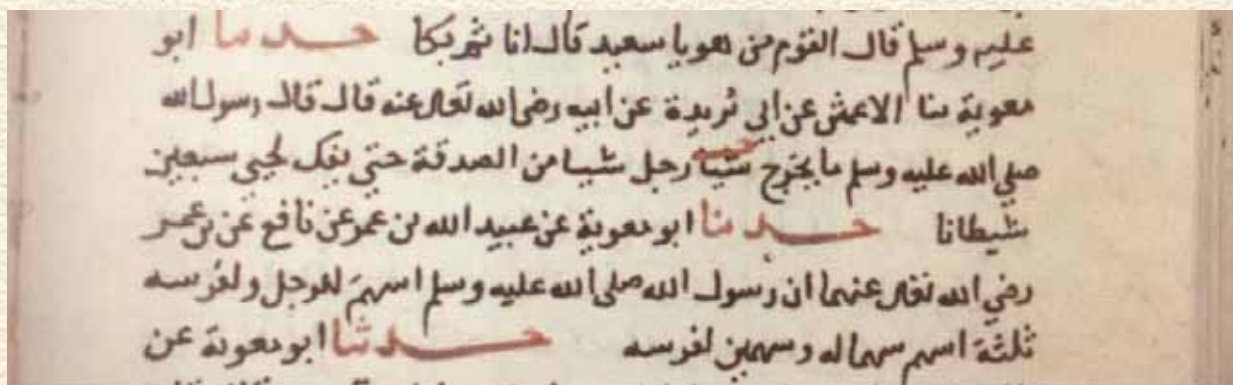 عليه وسلم قال القوم من هو يا سعيد قال انا ثم بكا حدثنا ابو
معوية ثنا الاعمش عن ابي بريدة عن ابيه رضي الله تعالى عنه قال قال رسول الله
صلي الله عليه وسلم ما يخرج شيئا رجل شيئا من الصدقة حتي يفك لحيي سبعين
شيطانا حدثنا ابو معوية عن عبيد الله بن عمر عن نافع عن بن عمر
رضي الله تعالى عنهما ان رسول الله صلى الله عليه وسلم اسهم للرجل ولفرسه
ثلثة اسهم سهما له وسهمين لفرسه حدثنا ابو معوية عن